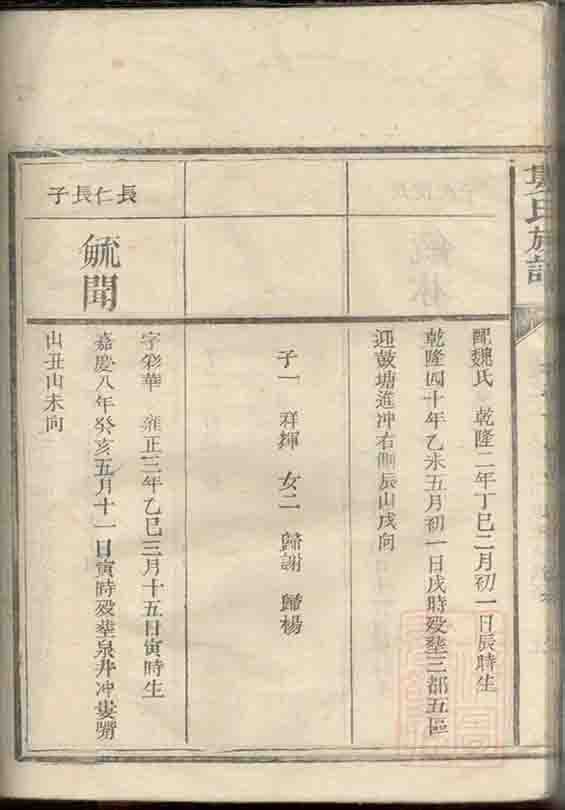 氏族譜
配魏氏 乾隆二年丁巳二月初一日辰時生
乾隆四十年乙未五月初一日戌時歿塟三都五區
迎鼓塘進冲右側辰山戌向
子一 祥輝 女二 歸謝 歸楊
長仁長子
毓聞
字彩華 雍正三年乙巳三月十五日寅時生
嘉慶八年癸亥五月十一日寅時歿塟泉井冲婁
山丑山未向